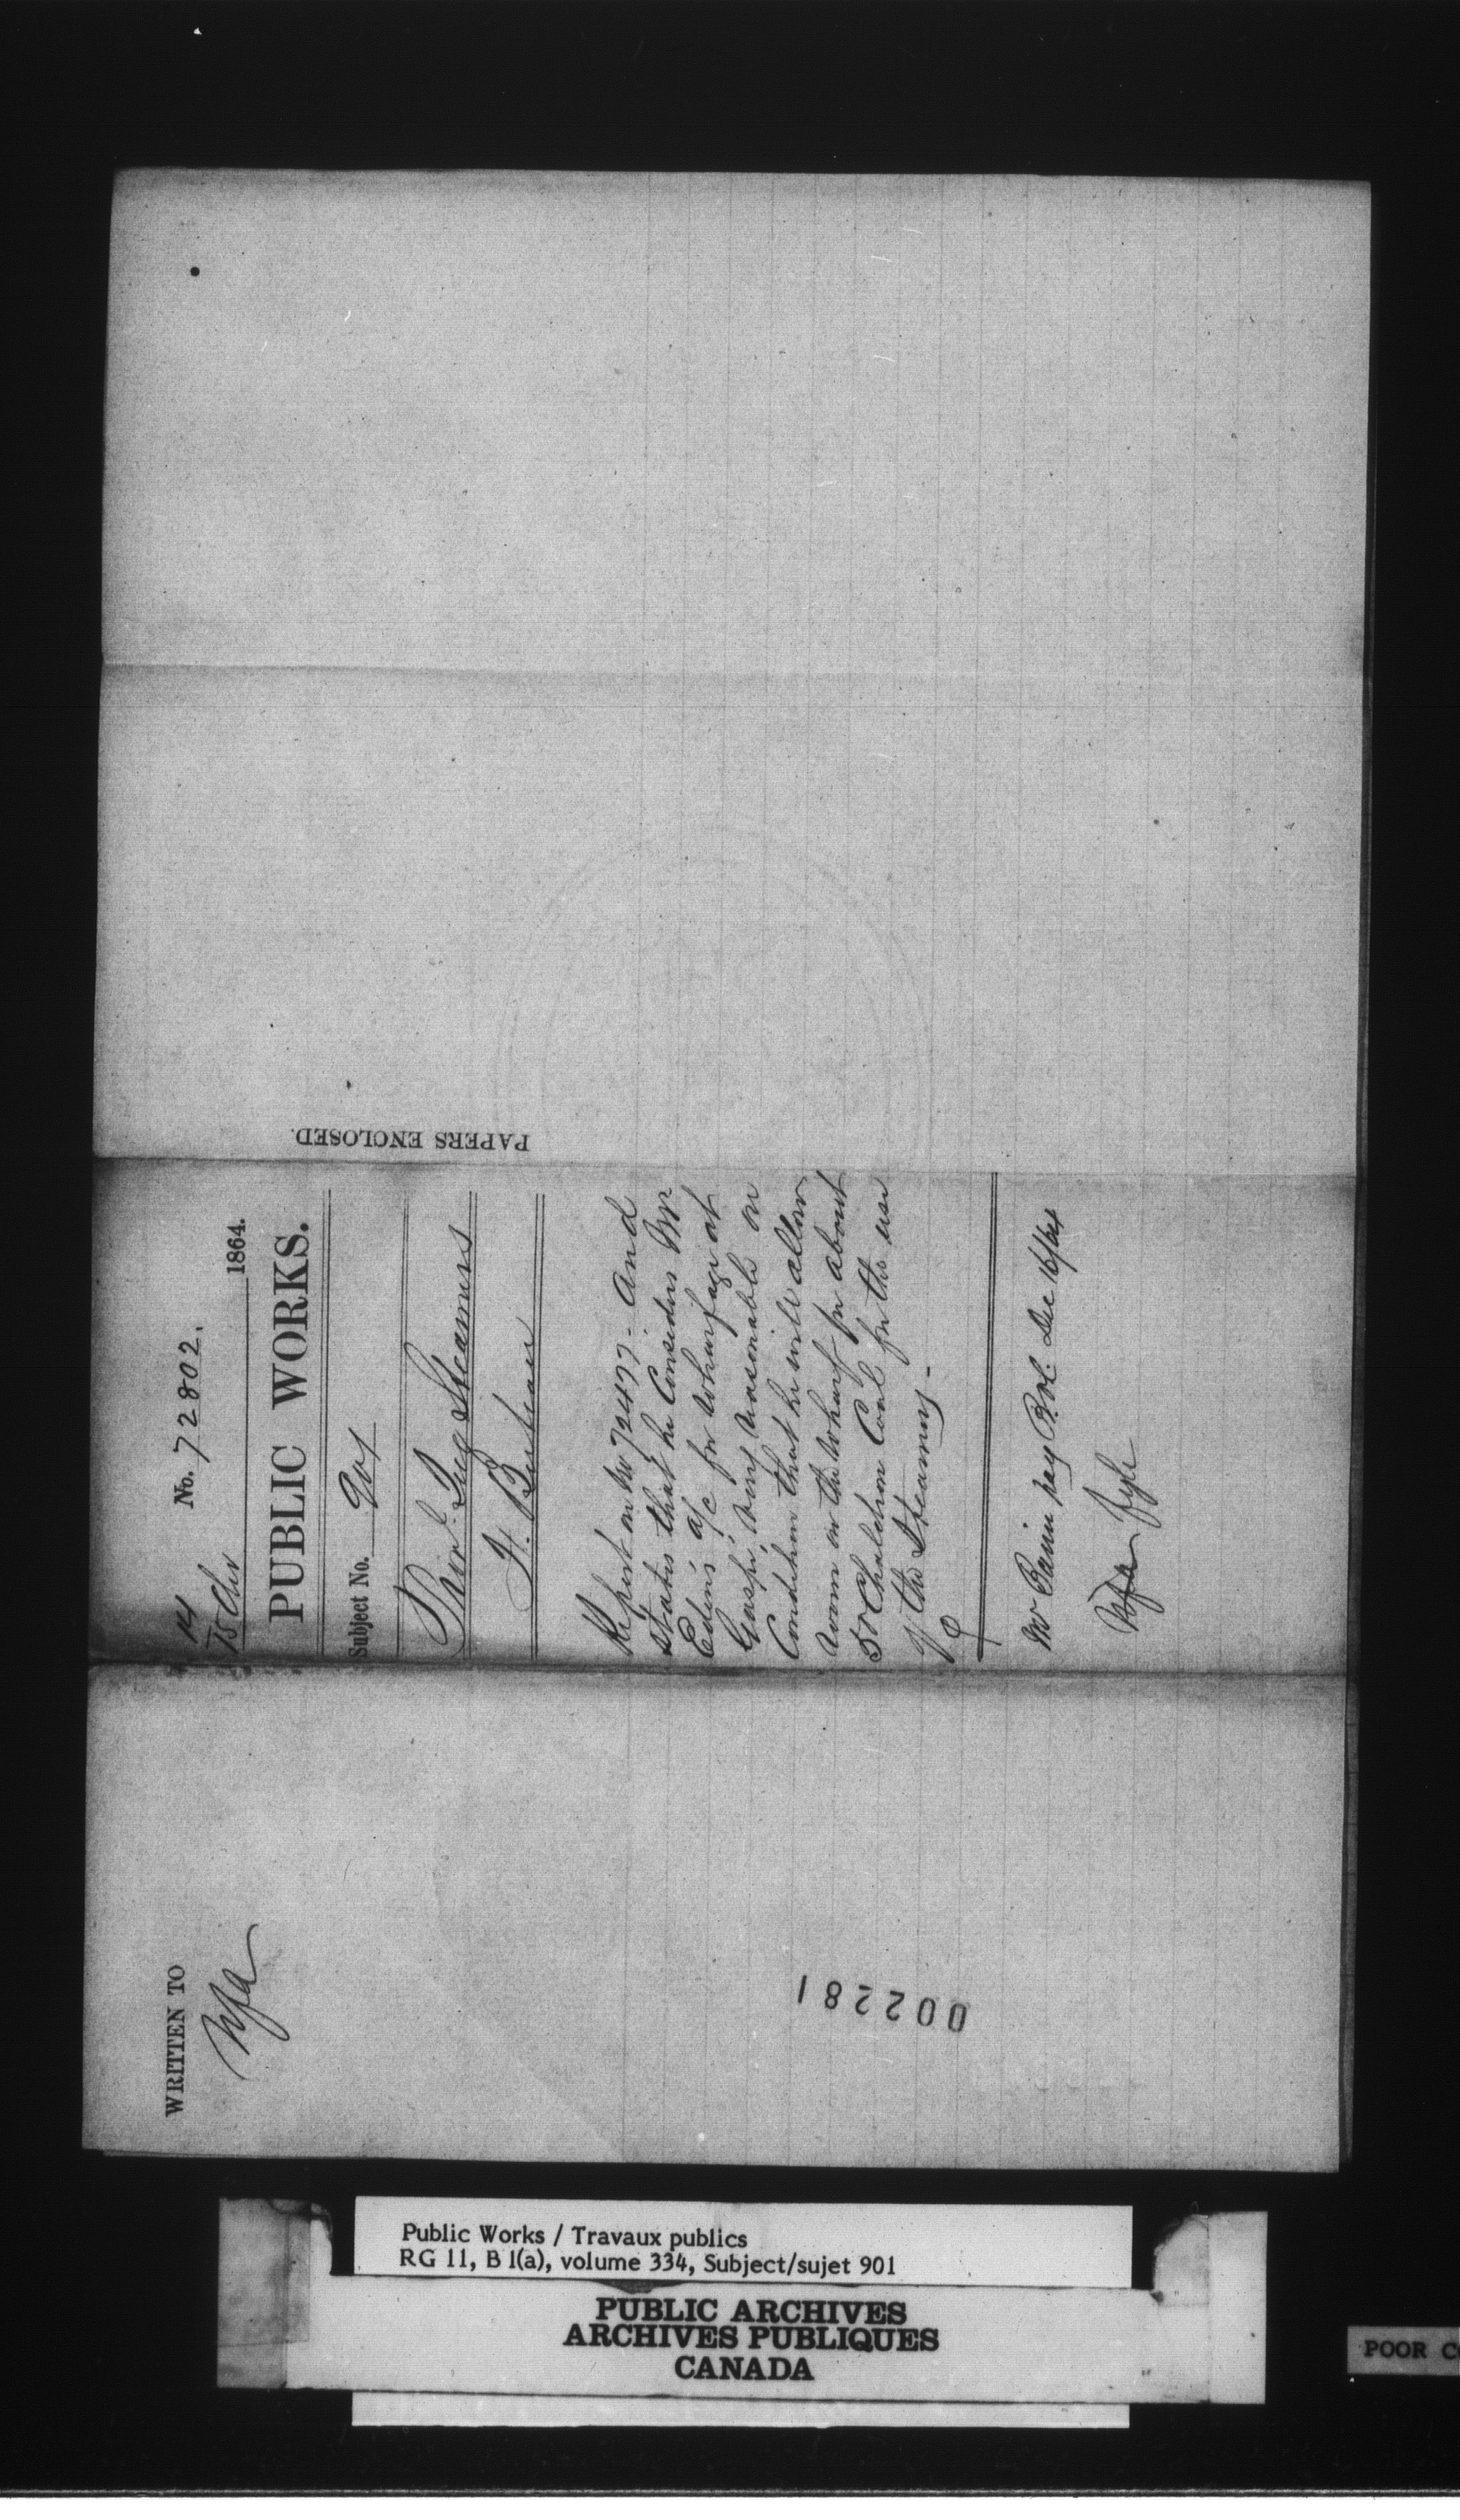 No. 72802.
14
15 Dec 1864.
PUBLIC WORKS.
Subject No. 901
Prov.l Tug Steamers
F. Buteau
Report on No 72477 - And
states that he Considers Mr
Eden's a/c for wharfage at
Gaspé, very reasonable on
Condition that he will allow
room on the wharf for about
50 Chaldron Coal for the use
of the Steamers -
Mr Bain pay Dec 16/64
File
PAPERS ENCLOSED.
WRITTEN TO
002281
Public Works / Travaux publics
RG 11, B 1(a), volume 334, Subject/sujet 901
PUBLIC ARCHIVES
ARCHIVES PUBLIQUES
CANADA
POOR CO